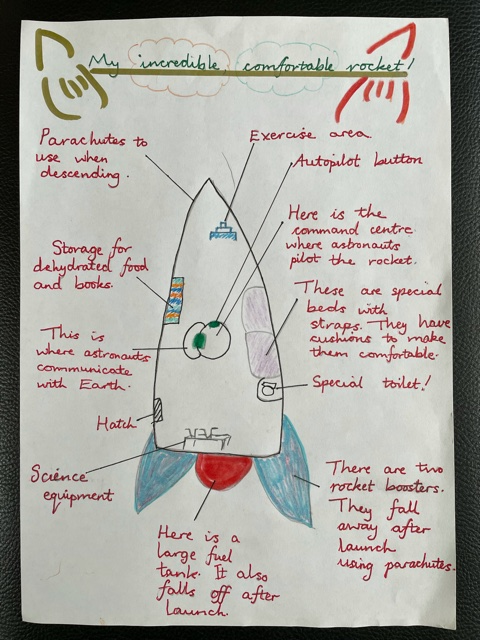 My incredible, comfortable rocket!
Parachutes to
use when
descending.
Exercise area
Autopilot button
Here is the
command centre
where astronauts
pilot the rocket.
Storage for
dehydrated food
and books.
These are special
beds with
straps. They have
cushions to make
them comfortable.
This is
where astronauts
communicate
with Earth.
Special toilet!
Hatch
Science
equipment
There are two
rocket boosters.
They fall
away after
launch
using parachutes.
Here is a
large fuel
tank. It also
falls off after
launch.